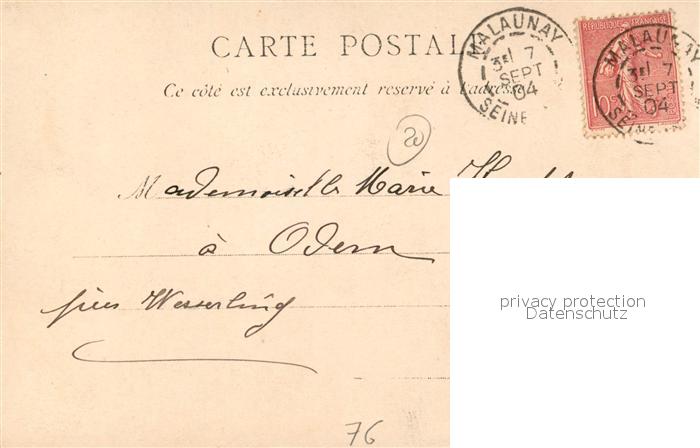 CARTE POSTALE
Ce côté est exclusivement reservé à l'adresse
MALAUNAY
3E 7
SEPT
04
SEINE
REPUBLIQUE FRANÇAISE
10c
MALAUNAY
3E 7
SEPT
04
SEINE
20
Mademoiselle Marie
à Odern
près Wesserling
privacy protection
Datenschutz
76